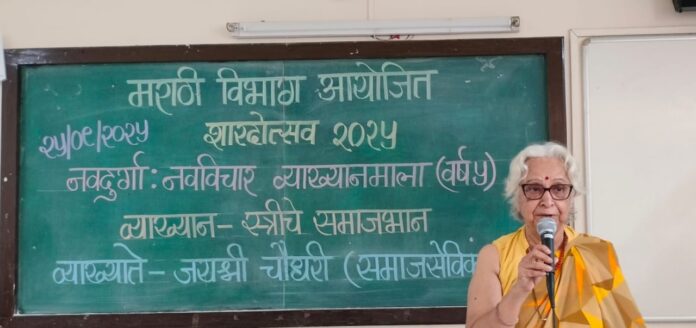 मराठी विभाग आयोजित
२५/०९/२०२५ शारदोत्सव २०२५
नवदुर्गा : नवविचार व्याख्यानमाला (वर्ष ५)
व्याख्यान – स्त्रीचे समाजभान
व्याख्याते – जयश्री चौधरी (समाजसेविक